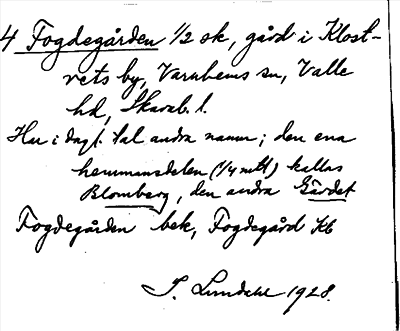 4 Fogdegården 1/2 sk, gård i Klost-
rets by, Varnhems sn, Valle
hd, Skarab. l.
Har i dagl. tal andra namn; den ena
hemmansdelen (1/4 mtl) kallas
Blomberg, den andra Gärdet
Fogdegården bek, Fogdegård Kb
S. Lundahl 1928.